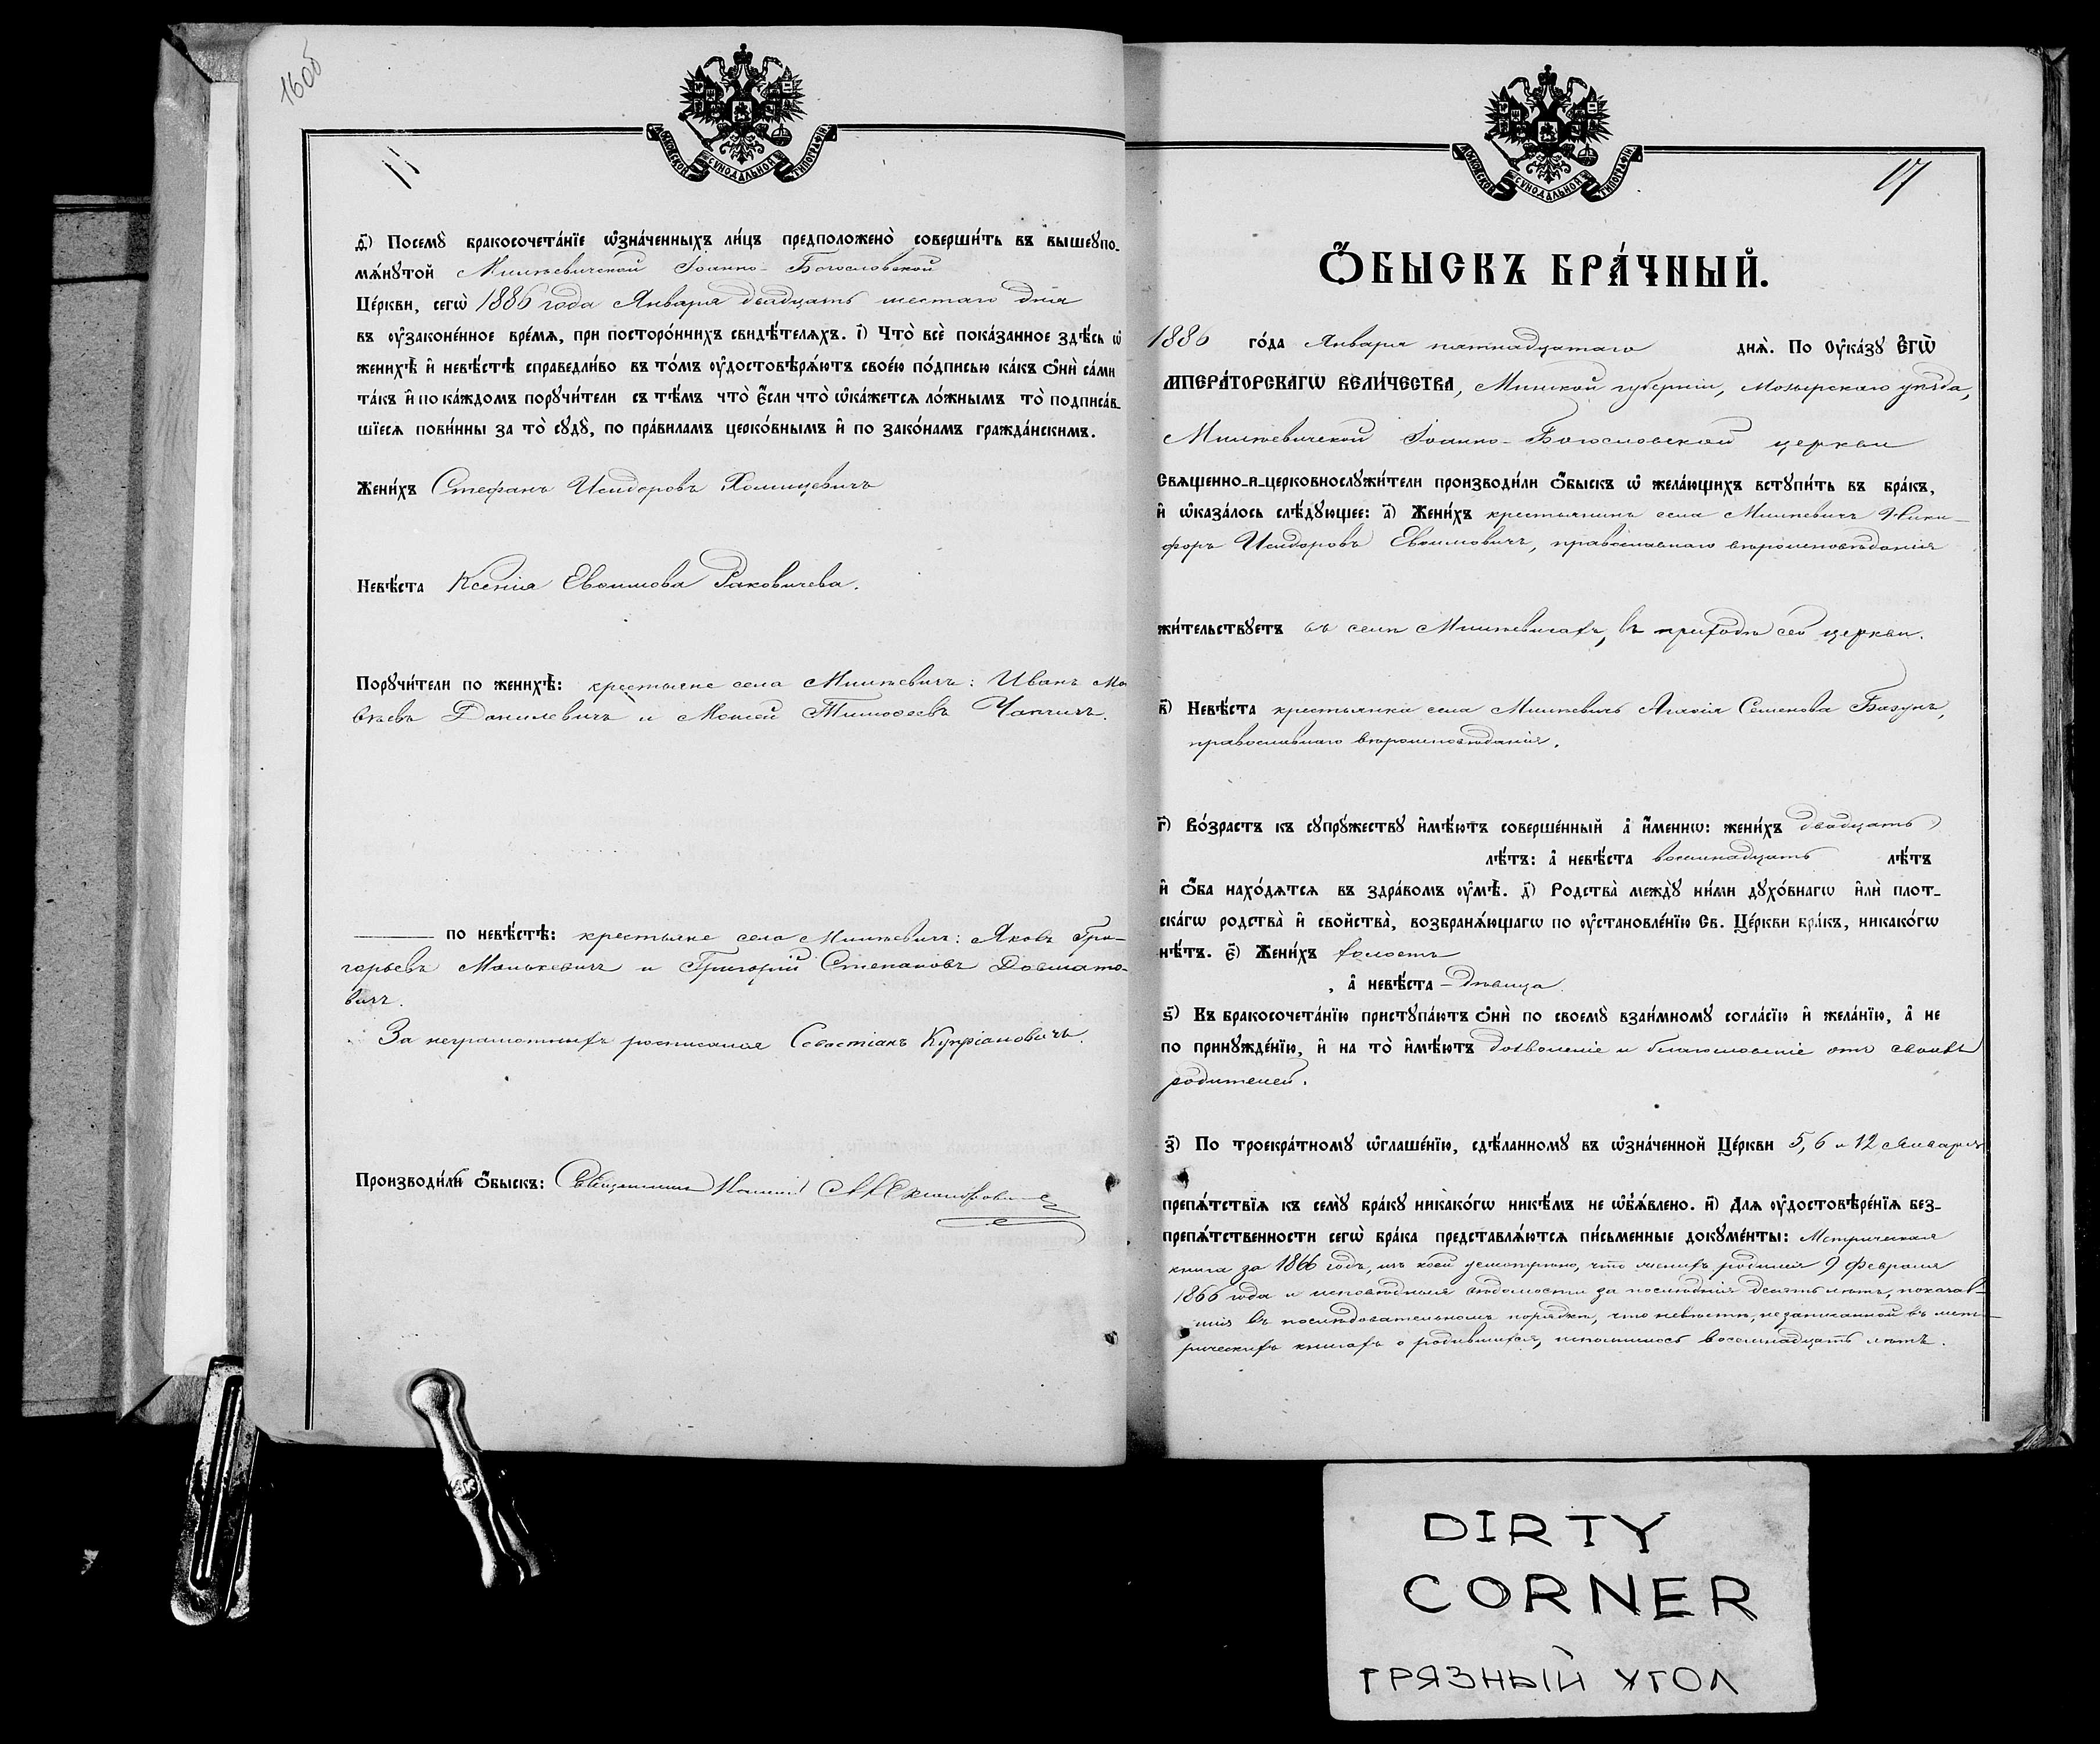 16об
11
МОСКОВСКОЙ СѴНОДАЛЬНОЙ ТИПОГРАФІИ
ѳ҃) Посемꙋ̀ бракосочета́нїе ѡ҆зна́ченныхъ ли́цъ предположено̀ соверши́ть въ вышеꙋпо-
мѧ́нꙋтой Милевичской Іоанно-Богословской
Це́ркви, сегѡ̀ 1886 года Января двадцать шестаго дня
въ ᲂу҆законе́нное вре́мѧ, при посторо́ннихъ свидѣ́телѧхъ. і҃) Что̀ всѐ пока́занное здѣ́сь ѡ҆
женихѣ̀ и҆ невѣ́стѣ справедли́во въ то́мъ ᲂу҆достовѣрѧ́ютъ свое́ю по́дписью ка́къ ѻ҆нѝ са́ми
та́къ и҆ по ка́ждомъ порꙋчи́тели съ тѣ́мъ что̀ є҆́сли что̀ ѡ҆ка́жетсѧ ло́жнымъ то̀ подписа́в-
шїесѧ пови́нны за то̀ сꙋдꙋ̀, по пра́виламъ церко́внымъ и҆ по зако́намъ гражда́нскимъ.
Жени́хъ Стефанъ Исидоровъ Хомицевичъ
Невѣ́ста Ксенія Евѳимова Раковичева.
Порꙋчи́тели по женихѣ̀: крестьяне села Милевичъ: Иванъ Мо-
Данилевичъ и Моисей Тимоѳеевъ Чопчичъ.
по невѣ́стѣ: крестьяне села Милевичъ: Яковъ Гри-
горьевъ Манкевичъ и Григорій Степановъ Довмато-
вичъ.
За неграмотныхъ росписался Севастіанъ Купріановичъ.
Производи́ли ѻ҆́быскъ: Священникъ
17
МОСКОВСКОЙ СѴНОДАЛЬНОЙ ТИПОГРАФІИ
Ѻ҆́БЫСКЪ БРА́ЧНЫЙ.
1886 го́да Января пятнадцатаго днѧ̀. По Оу҆ка́зꙋ Є҆гѡ̀
ИМПЕРА́ТОРСКАГѠ ВЕЛИ́ЧЕСТВА, Минской губерніи, Мозырскаго уѣзда,
Милевичской Іоанно-Богословской церкви
Свѧщенно-и-церковнослꙋжи́тели производи́ли ѻ҆́быскъ ѡ҆ жела́ющихъ встꙋпи́ть въ бра́къ,
и҆ ѡ҆каза́лось слѣ́дꙋющее: а҃) Жени́хъ крестьянинъ села Милевичъ Ники-
форъ Исидоровъ Евѳимовичъ, православнаго вѣроисповѣданія
жи́тельствꙋетъ въ селѣ Милевичахъ, въ приходѣ сей церкви.
в҃) Невѣ́ста крестьянка села Милевичъ Агаѳія Семенова Базунъ,
православнаго вѣроисповѣданія.
г҃) Во́зрастъ къ сꙋпрꙋ́жествꙋ и҆мѣ́ютъ соверше́нный а҆ и҆́меннѡ: жени́хъ двадцать
лѣ́тъ: а҆ невѣ́ста восемнадцать лѣ́тъ
и҆ ѻ҆́ба нахо́дѧтсѧ въ здра́вомъ ᲂу҆мѣ̀. д҃) Родства̀ междꙋ̀ ни́ми дꙋхо́внагѡ и҆лѝ плот-
ска́гѡ родства̀ и҆ сво́йства̀, возбранѧ́ющагѡ по ᲂу҆становле́нїю Св. Це́ркви бра́къ, никако́гѡ
нѣ́тъ. є҃) Жени́хъ холостъ
, а҆ невѣ́ста - дѣвица.
ѕ҃) Въ бракосочета́нїю пристꙋпа́ютъ ѻ҆нѝ по своемꙋ̀ взаи́мномꙋ согла́сїю и҆ жела́нїю, а҆ не
по принꙋжде́нїю, и҆ на то̀ и҆мѣ́ютъ дозволеніе и благословеніе отъ своихъ
родителей.
з҃) По троекра́тномꙋ ѡ҆глаше́нїю, сдѣ́ланномꙋ въ ѡ҆зна́ченной Це́ркви 5, 6 и 12 Января
препѧ́тствїѧ къ семꙋ̀ бра́кꙋ никако́гѡ никѣ́мъ не ѡ҆б̾ѧ́влено. и҃) Длѧ ᲂу҆достовѣре́нїѧ без-
препѧ́тственности сегѡ̀ бра́ка представлѧ́ютсѧ пи́сьменные докꙋме́нты: Метрическая
книга за 1866 годъ, изъ коей усмотрено, что женихъ родился 9 Февраля
1866 года и исповѣдныя вѣдомости за послѣднія десять лѣтъ, показав-
шія въ послѣдовательномъ порядкѣ, что невѣстѣ, незаписанной въ мет-
рическихъ книгахъ о родившихся, исполнилось восемнадцать лѣтъ.
DIRTY
CORNER
ГРЯЗНЫЙ УГОЛ